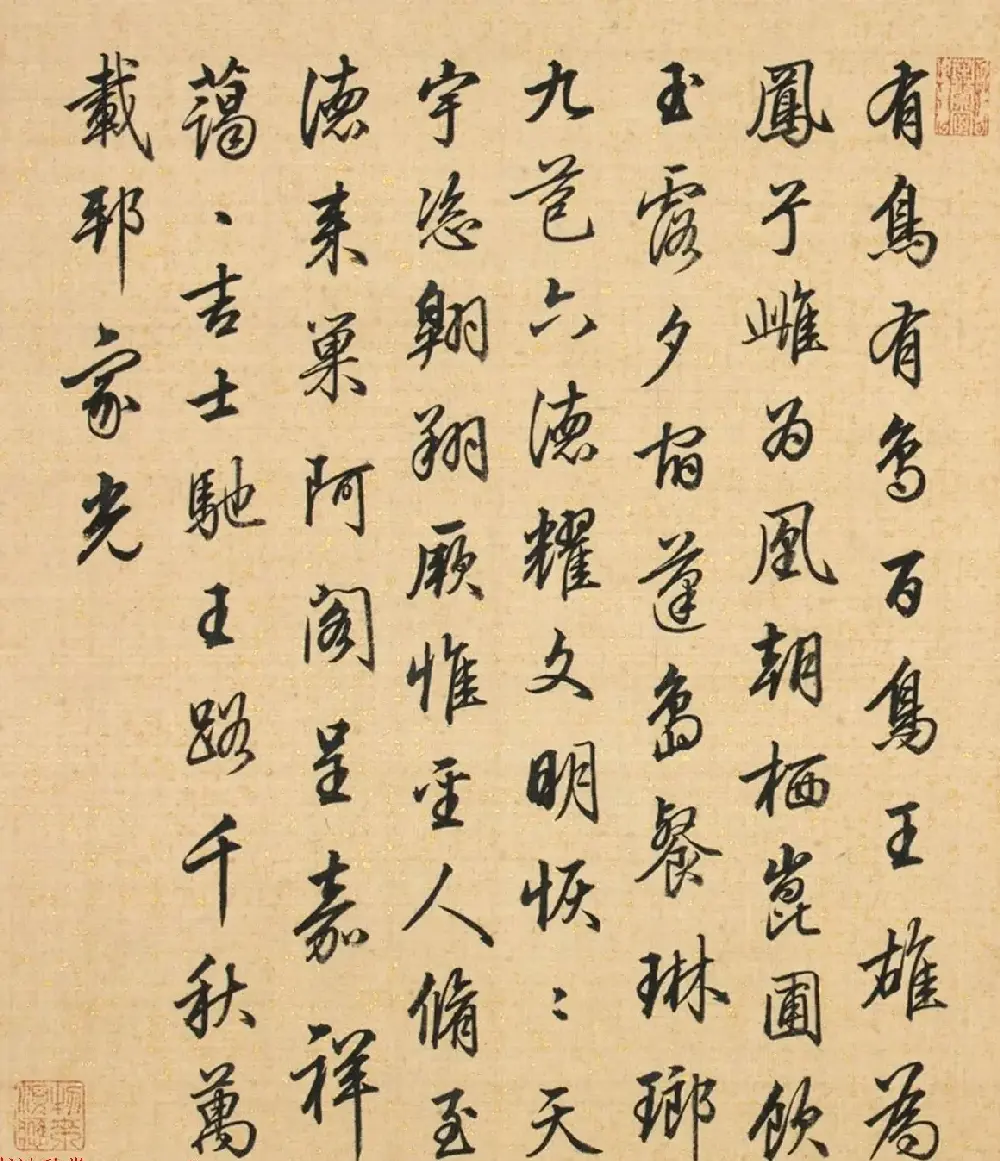 有鳥有鳥百鳥王雄為
鳳兮雌為凰朝栖崑圃飲
玉露夕宿蓬島餐琳瑯
九苞六德耀文明恢〻天
宇恣翱翔厥惟聖人脩至
德来巢阿閣呈嘉祥
藹〻吉士馳王路千秋萬
載邦家光